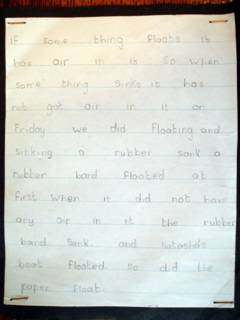 If some thing floats is
has air in is so when
some thing sinks it has
not got air in it on
Friday we did Floating and
sinking a rubber sank a
rubber band floated at
first when it did not have
any air in it the rubber
band sank and natasha's
boat floated so did the
paper float